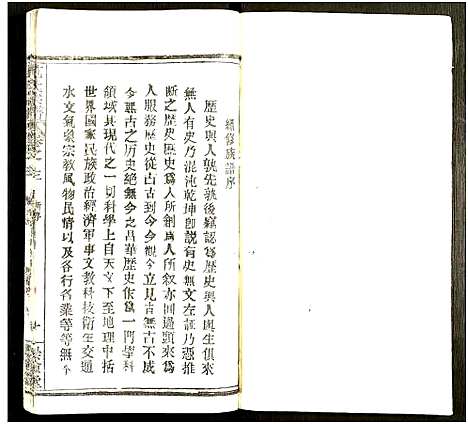 續修族譜序
歷史與人孰先孰後竊認為歷史與人與生俱來
無人有史乃混沌乾坤卽說有史無文左証乃憑推
断之歷史歷史為人所創為人所叙亦回過頭來為
人服務歷史從古古到今今觀今立見昔無古不成
今無古之历史絕無今之昌華歷史作為一門學科
領域其現代之一切科學上自天文下至地理中括
世界國家民族政治經濟軍事文教科技衛生交通
水文氣象宗教風物民情以及各行各業等等無不